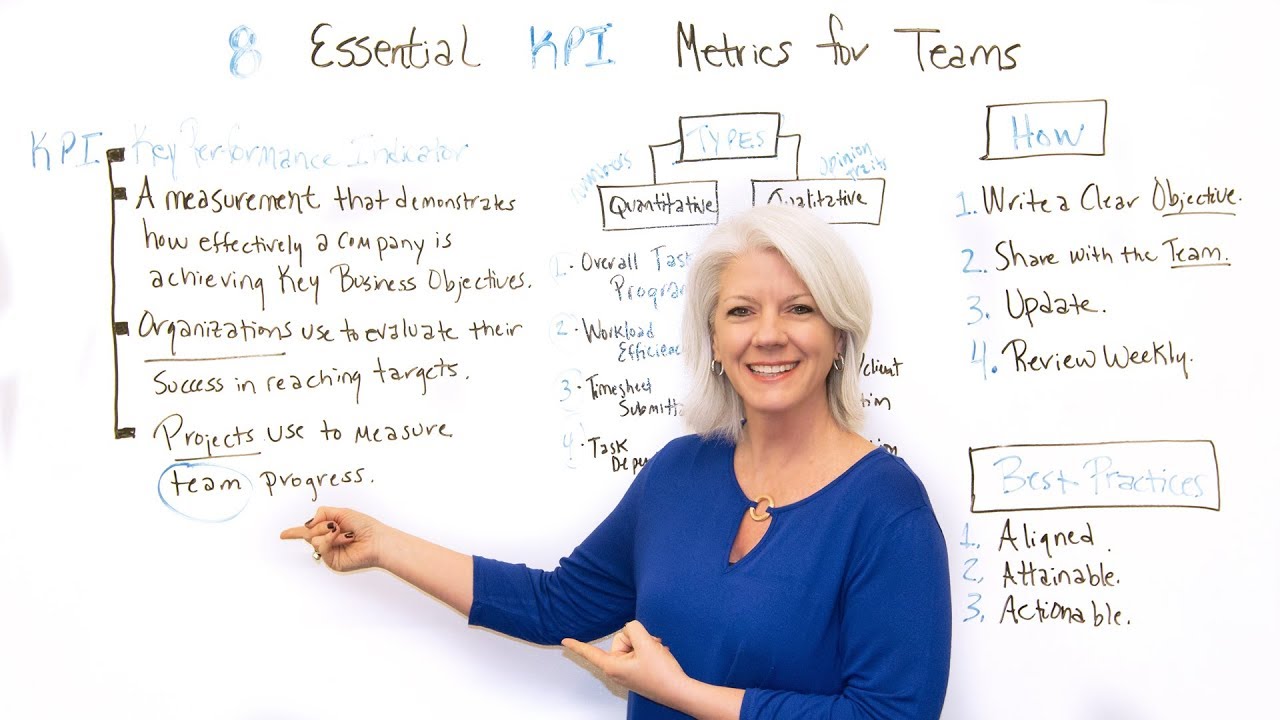 8 Essential KPI Metrics for Teams
KPI Key Performance Indicator
A measurement that demonstrates
how effectively a company is
achieving Key Business Objectives.
Organizations use to evaluate their
Success in reaching targets.
Projects use to Measure
team progress.
TYPES
Numbers
Opinion
traits
Quantitative
Qualitative
1. Overall Task
2. Workload
3. Timesheet
4. Task
/client
How
1. Write a Clear Objective.
2. Share with the Team.
3. Update.
4. Review Weekly.
Best Practices
1. Aligned.
2. Attainable.
3. Actionable.